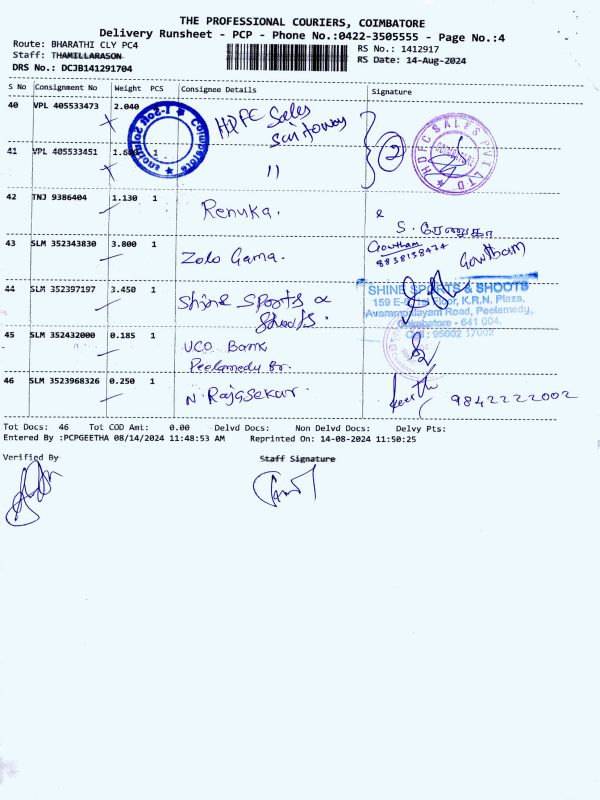 THE PROFESSIONAL COURIERS, COIMBATORE
Delivery Runsheet - PCP - Phone No.:0422-3505555 - Page No.:4
Route: BHARATHI CLY PC4
RS No.: 1412917
Staff: THAMILLARASON
RS Date: 14-Aug-2024
DRS No.: DCJB141291704
S No Consignment No Weight PCS Consignee Details Signature
40 VPL 405533473 2.040 HDFC Sales
41 VPL 405533451 "
HDFC SALES PVT LTD
42 TNJ 9386404 1.130 1 Renuka. S. ரேணுகா
43 SLM 352343830 3.800 1 Zolo Gama. Gowtham Gowtham
8838138474
44 SLM 352397197 3.450 1 Shine Sports &
Shoots.
SHINE SPORTS & SHOOTS
Floor, K.R.N, Plaza,
Avarampalayam Road, Peelamedu,
Coimbatore - 641 004.
Cell : 95002 17002
45 SLM 352432000 0.185 1 UCO Bank
Peelamedu Br.
46 SLM 3523968326 0.250 1 N. Rajasekar. Keerthi 9842222002
Tot Docs: 46 Tot COD Amt: 0.00 Delvd Docs: Non Delvd Docs: Delvy Pts:
Entered By :PCPGEETHA 08/14/2024 11:48:53 AM Reprinted On: 14-08-2024 11:50:25
Verified By Staff Signature